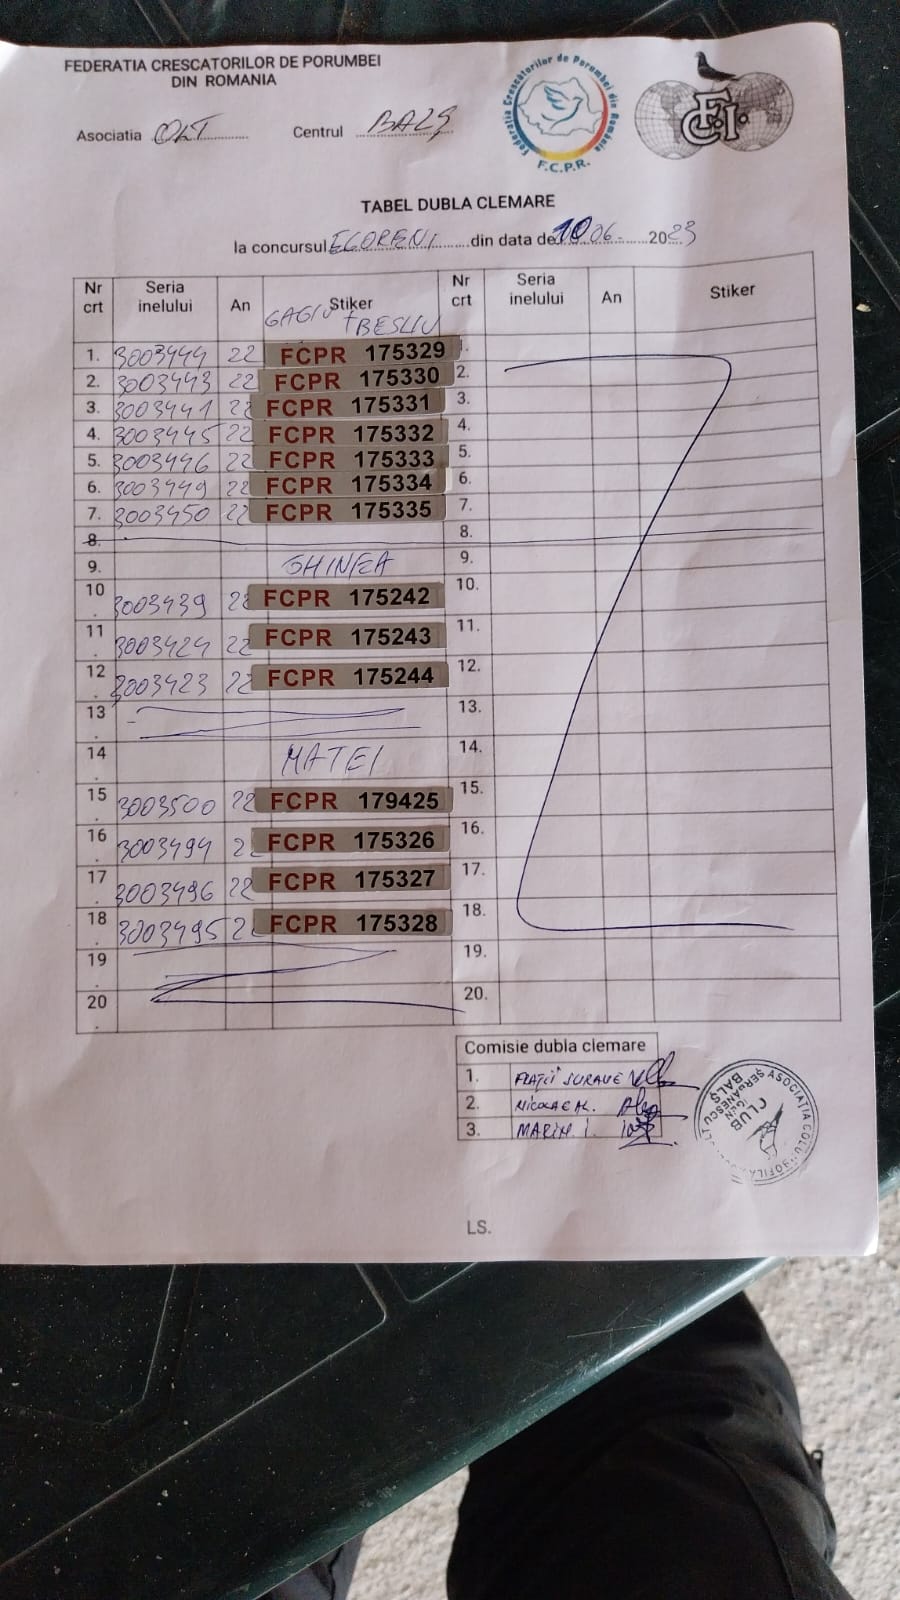 FEDERATIA CRESCATORILOR DE PORUMBEI
DIN ROMANIA
Federatia Crescătorilor de Porumbei din România
F.C.P.R.
F.C.I.
Asociatia OLT Centrul BALȘ
TABEL DUBLA CLEMARE
la concursul EGORENI din data de 10 06- 2023
Nr crt Seria inelului An Stiker Nr crt Seria inelului An Stiker
GAGIU + BESLIU
1. 3003444 22 FCPR 175329 1.
2. 3003443 22 FCPR 175330 2.
3. 3003441 22 FCPR 175331 3.
4. 3003445 22 FCPR 175332 4.
5. 3003446 22 FCPR 175333 5.
6. 3003449 22 FCPR 175334 6.
7. 3003450 22 FCPR 175335 7.
8. 8.
9. GHINEA 9.
10. 3003439 22 FCPR 175242 10.
11. 3003424 22 FCPR 175243 11.
12. 3003423 22 FCPR 175244 12.
13. 13.
14. MATEI 14.
15. 3003500 22 FCPR 179425 15.
16. 3003494 22 FCPR 175326 16.
17. 3003496 22 FCPR 175327 17.
18. 3003495 22 FCPR 175328 18.
19. 19.
20. 20.
Comisie dubla clemare
1. FRAȚII
2. NICOLAE AL.
3. MARIN. I.
CLUB
BALȘ
LS.